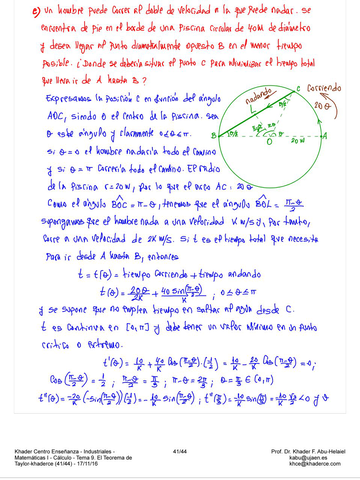 e) Un hombre puede correr al doble de velocidad a la que puede nadar. Se
encontraba de pie en el borde de una piscina circular de 40M de diámetro
y desea llegar al punto diametralmente opuesto B en el menor tiempo
posible. ¿Donde se debería situar el punto C para minimizar el tiempo total
que lleva ir de A hasta B?
nadando
Corriendo
20θ
L
C
B
O
20 m
A
Expresamos la posición C en función del ángulo
AOC, siendo O el centro de la piscina. Sea
θ este ángulo y claramente 0≤θ≤π.
Si θ=0 el hombre nadaría todo el camino
y si θ=π correría todo el camino. El radio
de la piscina r=20m, por lo que el arco AC: 20θ
Como el ángulo BOC = π-θ, tenemos que el ángulo BOL = (π-θ)/2
Supongamos que el hombre nada a una velocidad K m/s y, por tanto,
corre a una velocidad de 2K m/s. Si t es el tiempo total que necesita
para ir desde A hasta B, entonces
t = t(θ) = tiempo corriendo + tiempo andando
t(θ) = 20θ/2K + 40 sin((π-θ)/2)/K ; 0≤θ≤π
y se supone que no emplea tiempo en saltar al agua desde C.
t es continua en [0,π] y debe tener un valor mínimo en un punto
crítico o extremo.
t'(θ) = 10/K + 40/K cos((π-θ)/2)·(-1/2) = 10/K - 20/K cos((π-θ)/2) = 0;
cos((π-θ)/2) = 1/2 ; (π-θ)/2 = π/3 ; π-θ = 2π/3 ; θ = π/3 ∈ (0,π)
t''(θ) = -20/K (-sin((π-θ)/2))(-1/2) = -10/K sin((π-θ)/2) ; t''(π/3) = -10/K sin(π/3) = -10/K √3/2 < 0 y
Khader Centro Enseñanza - Industriales -
Matemáticas I - Cálculo - Tema 9. El Teorema de
Taylor-khaderce (41/44) - 17/11/16
41/44
Prof. Dr. Khader F. Abu-Helaiel
kabu@ujaen.es
khce@khaderce.com